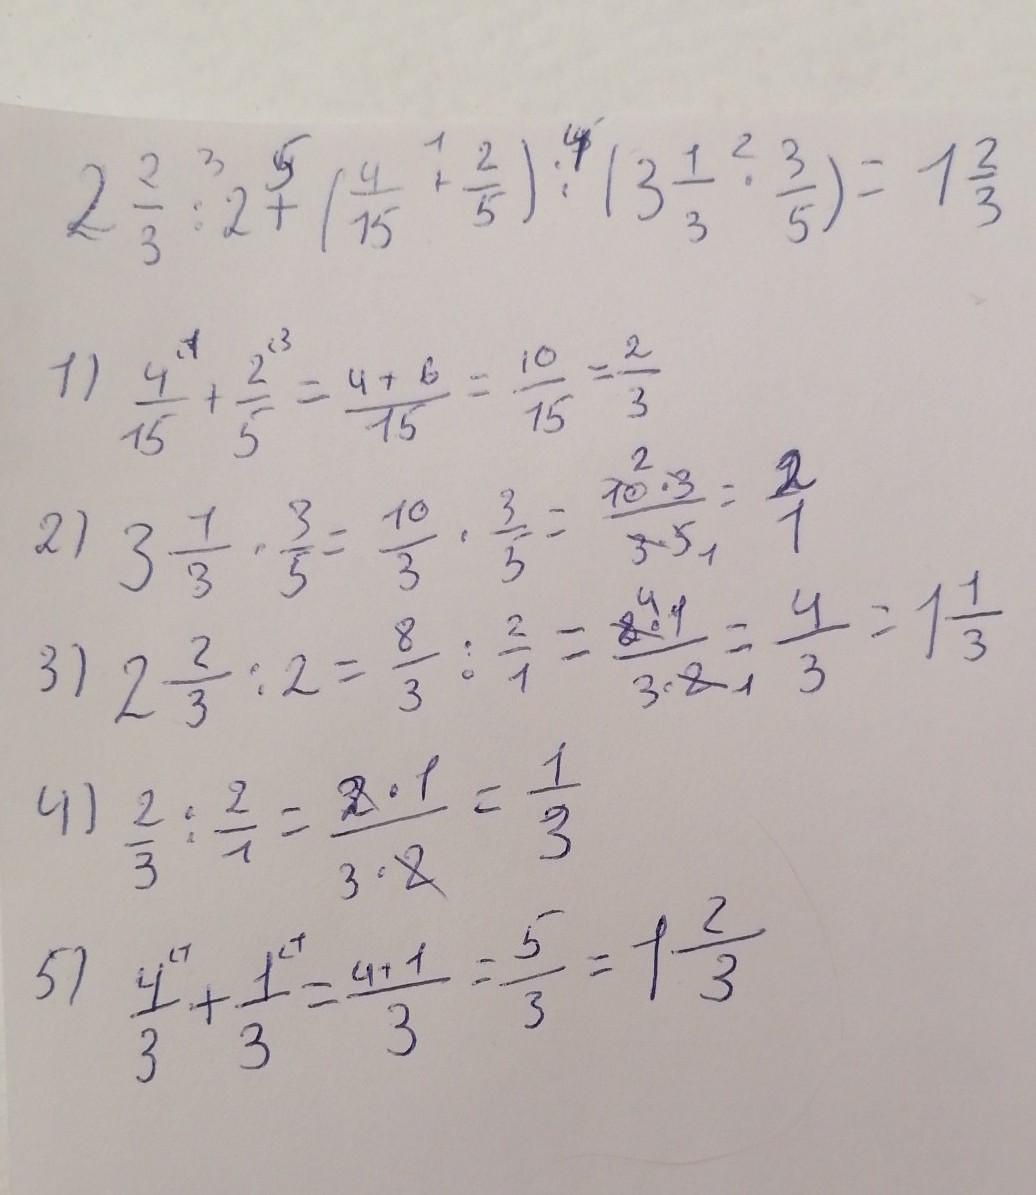 2 2/3 :³ 2 +⁵ (4/15 +¹ 2/5) :⁴ (3 1/3 ·² 3/5) = 1 2/3
1) 4/15 + 2/5 = 4+6/15 = 10/15 = 2/3
2) 3 1/3 · 3/5 = 10/3 · 3/5 = 10·3/3·5 = 2/1
3) 2 2/3 : 2 = 8/3 : 2/1 = 8·1/3·2 = 4/3 = 1 1/3
4) 2/3 : 2/1 = 2·1/3·2 = 1/3
5) 4/3 + 1/3 = 4+1/3 = 5/3 = 1 2/3